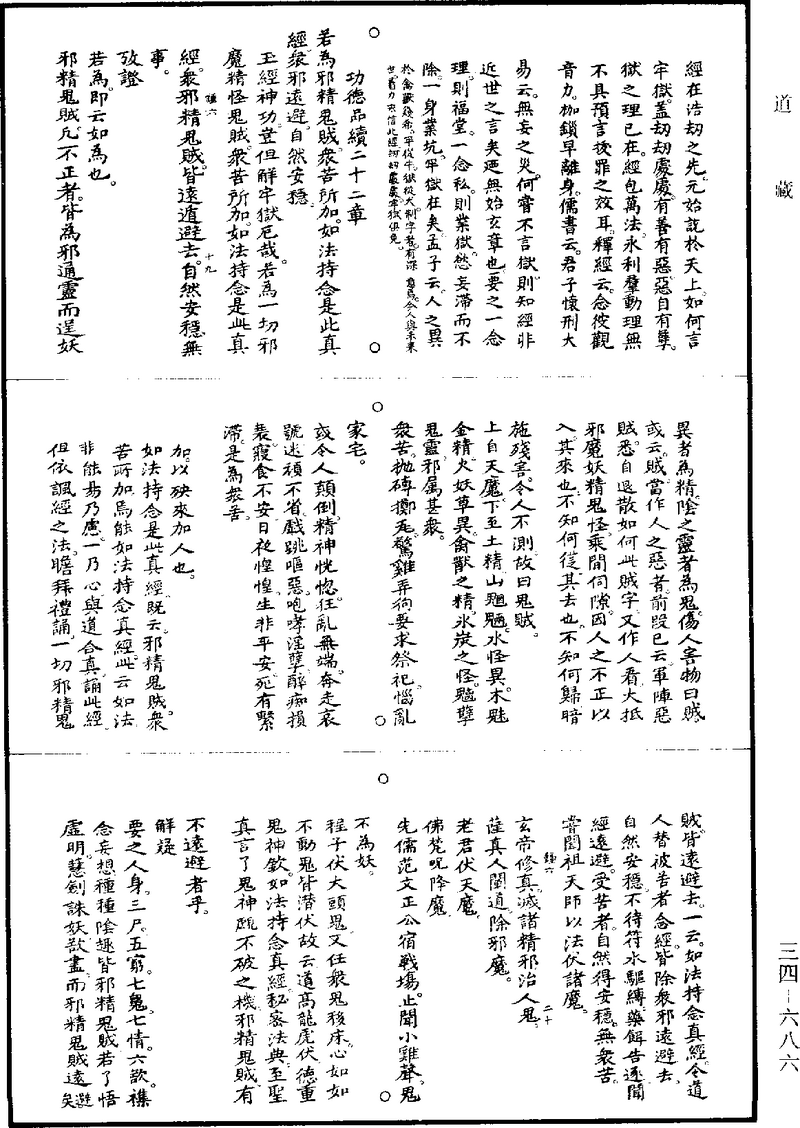 道藏
經在浩劫之先元始説於天上如何言
牢獄蓋劫劫處處有善有惡惡自有孽
獄之理已在經包萬法永利羣動理無
不具預言拔罪之效耳釋經云念彼觀
音力枷鎖早離身儒書云君子懷刑大
易云無妄之災何嘗不言獄則知經非
近世之言矣迺無始玄章也要之一念
理則福堂一念私則業獄慾妄滯而不
除一身業坑牢獄在矣孟子云人之異
於禽獸幾希牢從牛獄從犬制字者有深意焉令人與未來
世看力不信此經何的處處牢獄俱免
功德品續二十二章
若爲邪精鬼賊衆苦所加如法持念是此真
經衆邪遠避自然安穩
玉經神功豈但解牢獄厄哉若爲一切邪
魔精怪鬼賊衆苦所加如法持念是此真
經衆邪精鬼賊皆遠遁避去自然安穩無
事
攷證
若爲即云如爲也
邪精鬼賊凡不正者皆爲邪通靈而逞妖
異者爲精陰之靈者爲鬼傷人害物曰賊
或云賊當作人之惡者前段已云軍陣惡
賊悉自退散如何此賊字又作人看大抵
邪魔妖精鬼怪乘間伺隙因人之不正以
入其來也不知何從其去也不知何歸暗
施殘害令人不測故曰鬼賊
上自天魔下至土精山魈魎水怪異木魅
金精火妖草異禽獸之精氷炭之怪魑孽
鬼靈邪属甚衆
衆苦抛磚擲瓦驚雞弄狗要求祭祀惱亂
家宅
或令人顛倒精神恍惚狂亂無端奔走哀
號迷頑不省戲跳嘔惡咆哮淫孽醉痴損
裝寢食不安日夜惶惶生非平安死有繫
滯是爲衆苦
加以殃來加人也
如法持念是此真經既云邪精鬼賊衆
苦所加焉能如法持念真經此云如法
非能易乃慮一乃心與道合真誦此經
但依諷經之法瞻拜禮誦一切邪精鬼
賊皆遠避去一云如法持念真經令道
人替被苦者念經皆除衆邪遠避去
自然安穩不待符水驅縛藥餌告逐聞
經遠避受苦者自然得安穩無衆苦
嘗聞祖天師以法伏諸魔
玄帝修真滅諸精邪治人鬼
薩真人闡道除邪魔
老君伏天魔
佛梵呪降魔
先儒范文正公宿戰場止聞小雞聲鬼
不爲妖
程子伏大頭鬼又任衆鬼移床心如如
不動鬼皆潛伏故云道高龍虎伏德重
鬼神欽如法持念真經秘密法典至聖
真言了鬼神䏿不破之機邪精鬼賊有
不遠避者乎
解疑
要之人身三尸五窮七鬼七情六欲襍
念妄想種種陰趣皆邪精鬼賊若了悟
虚明慧劍誅妖歘盡而邪精鬼賊遠避矣
三四-六八六